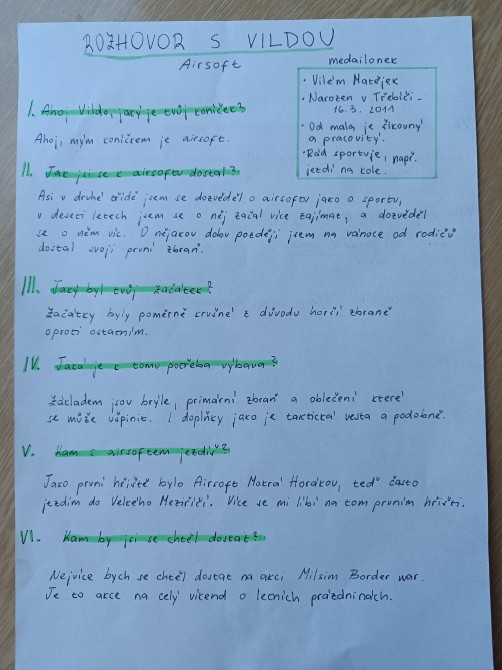 ROZHOVOR S VILDOU
Airsoft
medailonek
• Vilém Matějek
• Narozen v Třebíči -
16.3. 2011
• Od mala je šikovný
a pracovitý.
• Rád sportuje, např.
jezdí na kole.
I. Ahoj Vildo, jaký je tvůj koníček?
Ahoj, mým koníčkem je airsoft.
II. Jak jsi se k airsoftu dostal?
Asi v druhé třídě jsem se dozvěděl o airsoftu jako o sportu,
v deseti letech jsem se o něj začal více zajímat, a dozvěděl
se o něm víc. O nějakou dobu později jsem na vánoce od rodičů
dostal svoji první zbraň.
III. Jaký byl tvůj začátek?
Začátky byly poměrně krušné z důvodu horší zbraně
oproti ostatním.
IV. Jaká je k tomu potřeba výbava?
Základem jsou brýle, primární zbraň a oblečení které
se může ušpinit. I doplňky jako je taktická vesta a podobně.
V. Kam s airsoftem jezdíš?
Jako první hřiště bylo Airsoft Mokrá Horákov, teď často
jezdím do Velkého Meziříčí. Více se mi líbí na tom prvním hřišti.
VI. Kam by jsi se chtěl dostat?
Nejvíce bych se chtěl dostat na akci Milsim Border war.
Je to akce na celý víkend o letních prázdninách.